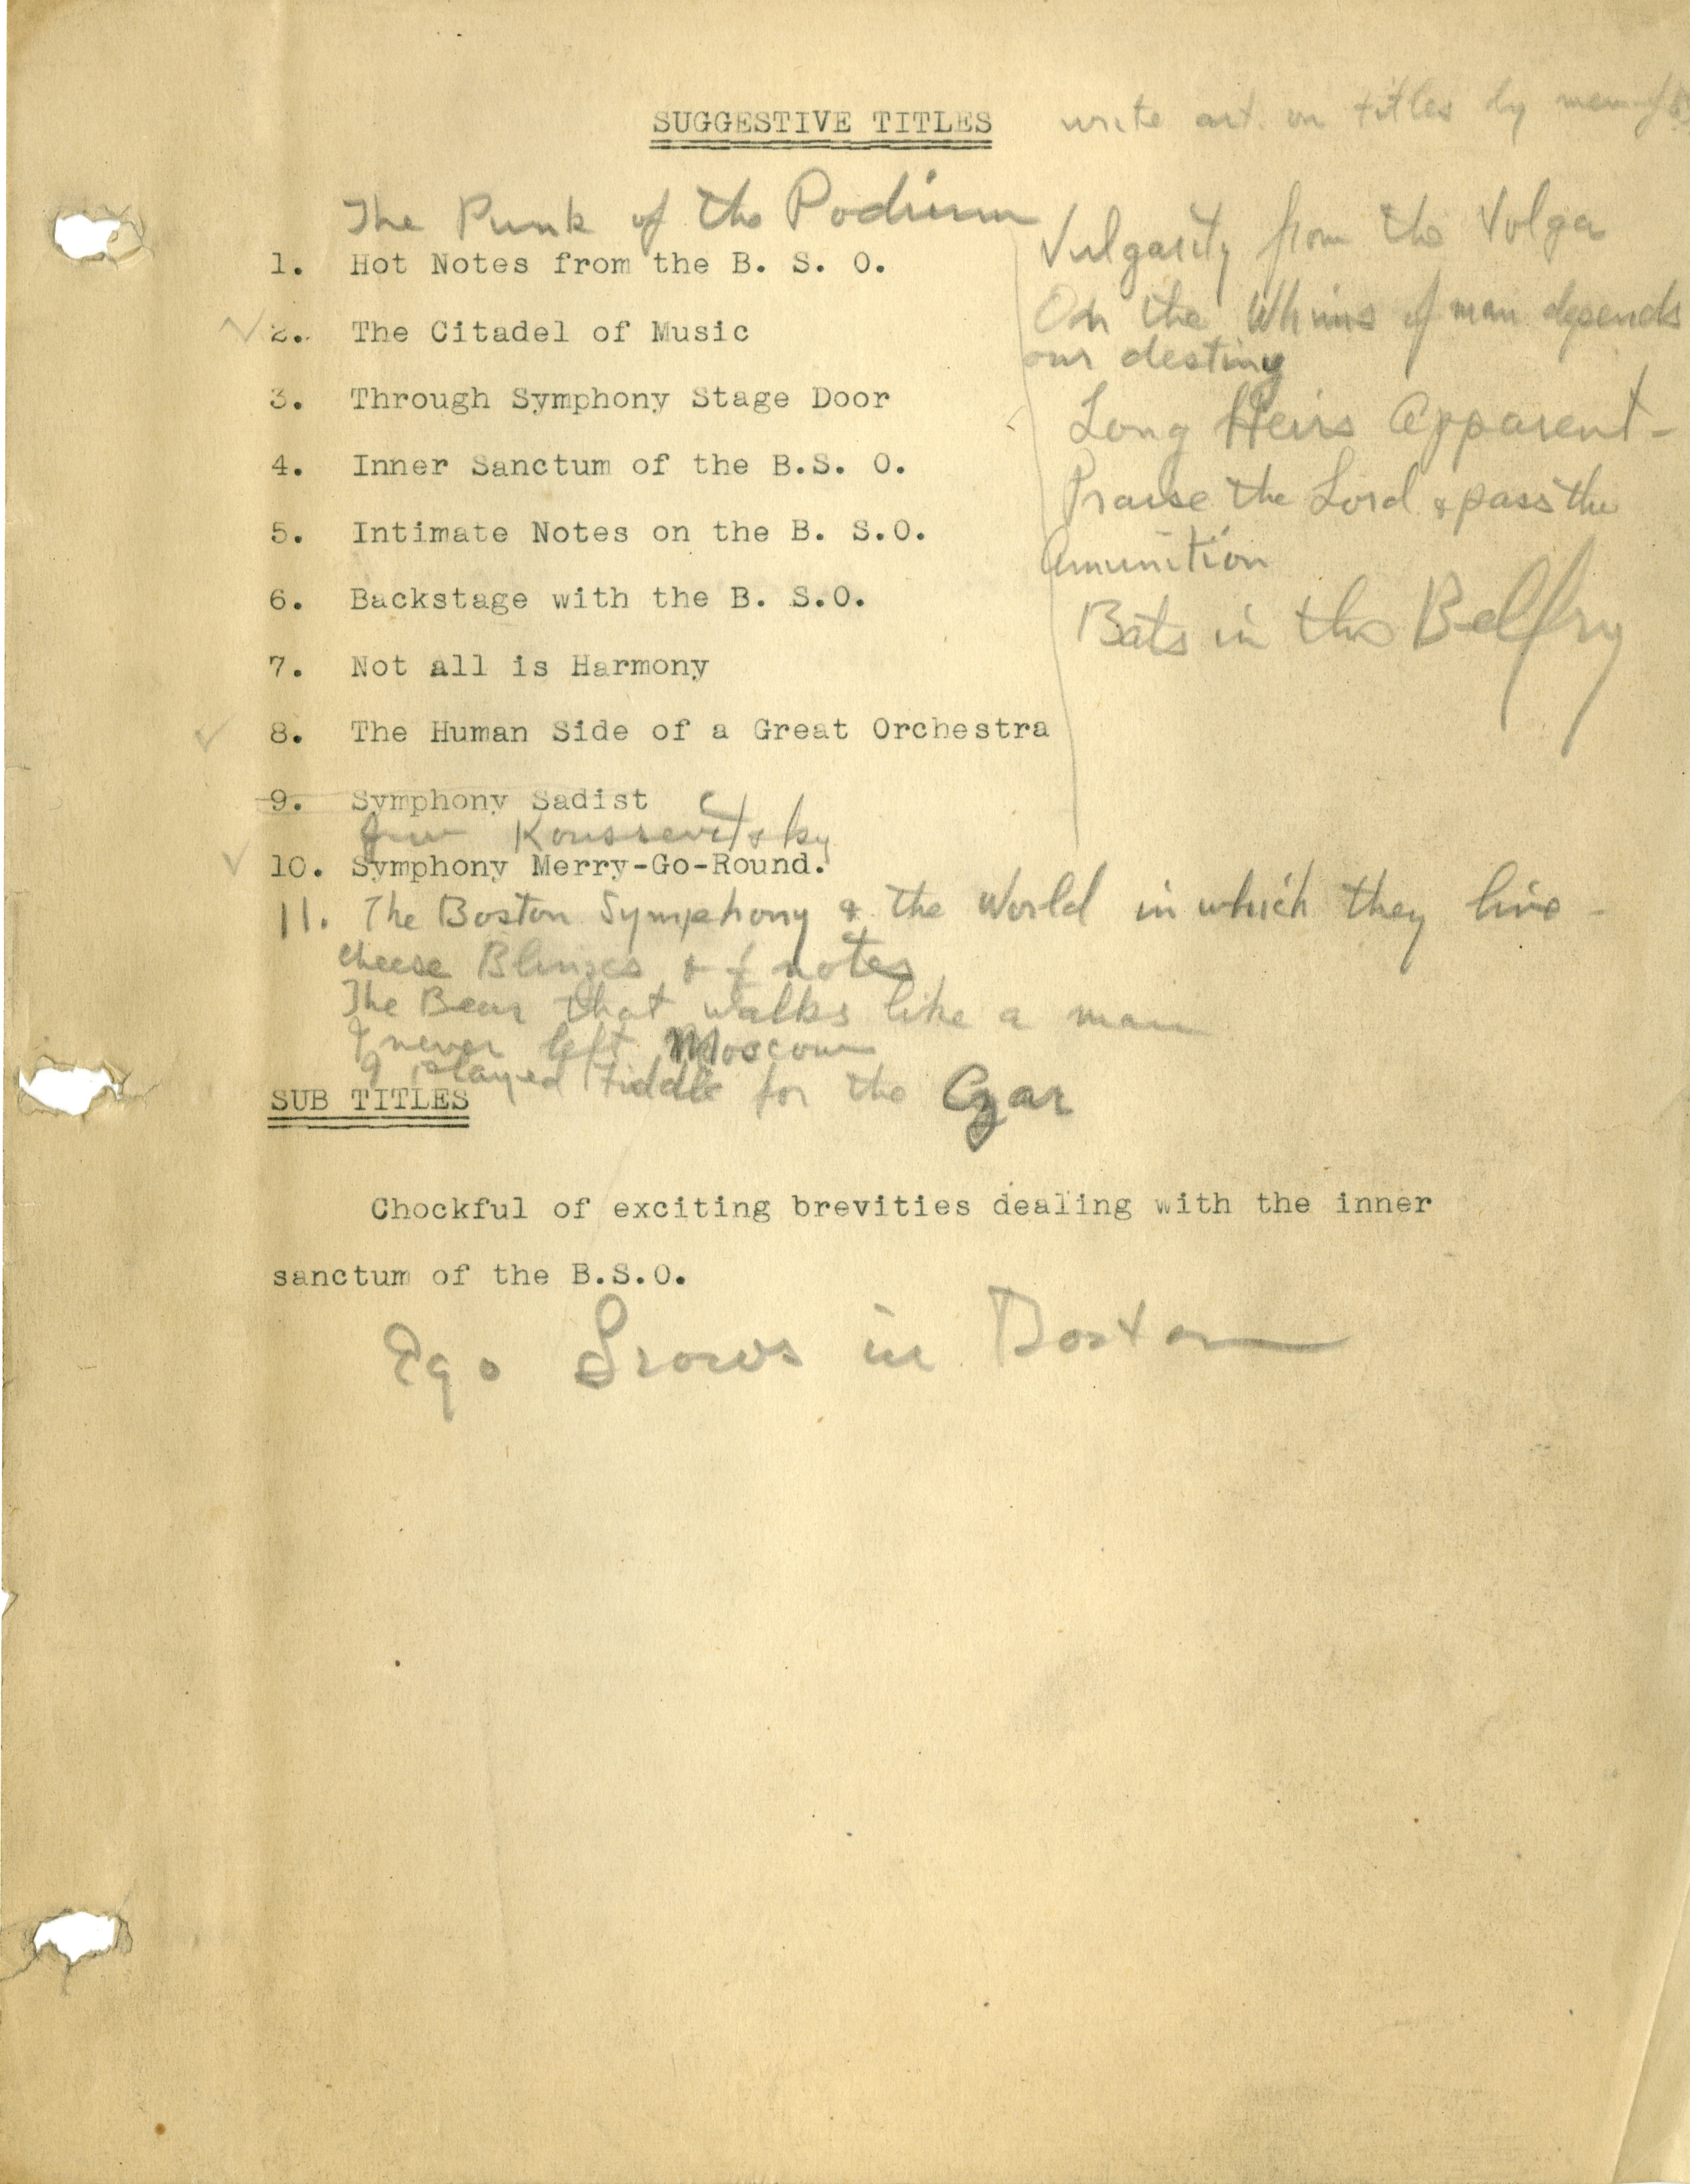 SUGGESTIVE TITLES
write art. on titles by
The Punk of the Podium
1. Hot Notes from the B. S. O.
2. The Citadel of Music
3. Through Symphony Stage Door
4. Inner Sanctum of the B.S. O.
5. Intimate Notes on the B. S.O.
6. Backstage with the B. S.O.
7. Not all is Harmony
8. The Human Side of a Great Orchestra
9. Symphony Sadist
Koussevitsky
10. Symphony Merry-Go-Round.
11. The Boston Symphony & the World in which they live -
cheese Blinzes & notes
The Bear that walks like a man
I never left Moscow
I played fiddle for the Czar
Vulgarity from the Volga
On the Whims of man depends
our destiny
Long Heirs Apparent -
Praise the Lord & pass the
Amunition
Bats in the Belfry
SUB TITLES
Chockful of exciting brevities dealing with the inner
sanctum of the B.S.O.
Ego Grows in Boston